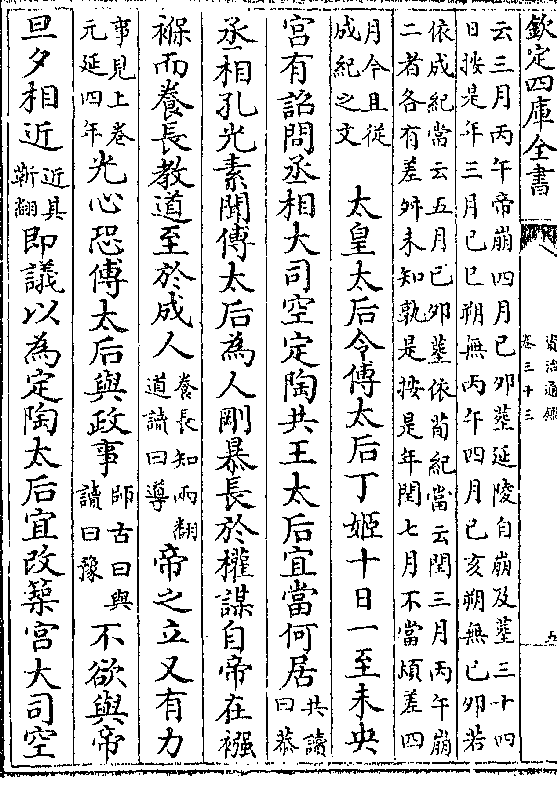 欽定四庫全書
資治通鑑
卷三十三
五
云三月丙午帝崩四月己夘𦵏延陵自崩及𦵏三十四
日按是年三月己巳朔無丙午四月己亥朔無己夘若
依成紀當云五月己夘𦵏依荀紀當云閏三月丙午崩
二者各有差舛未知孰是按是年閏七月不當頓差四
月今且從
成紀之文
太皇太后令傅太后丁姬十日一至未央
宮有詔問丞相大司空定陶共王太后宜當何居
共讀
曰恭
丞相孔光素聞傅太后為人剛暴長於權謀自帝在襁
褓而養長教道至於成人
養長知兩翻
道讀曰導
帝之立又有力
事見上卷
元延四年
光心恐傅太后與政事
師古曰與
讀曰豫
不欲與帝
旦夕相近
近具
靳翻
即議以為定陶太后宜改築宮大司空